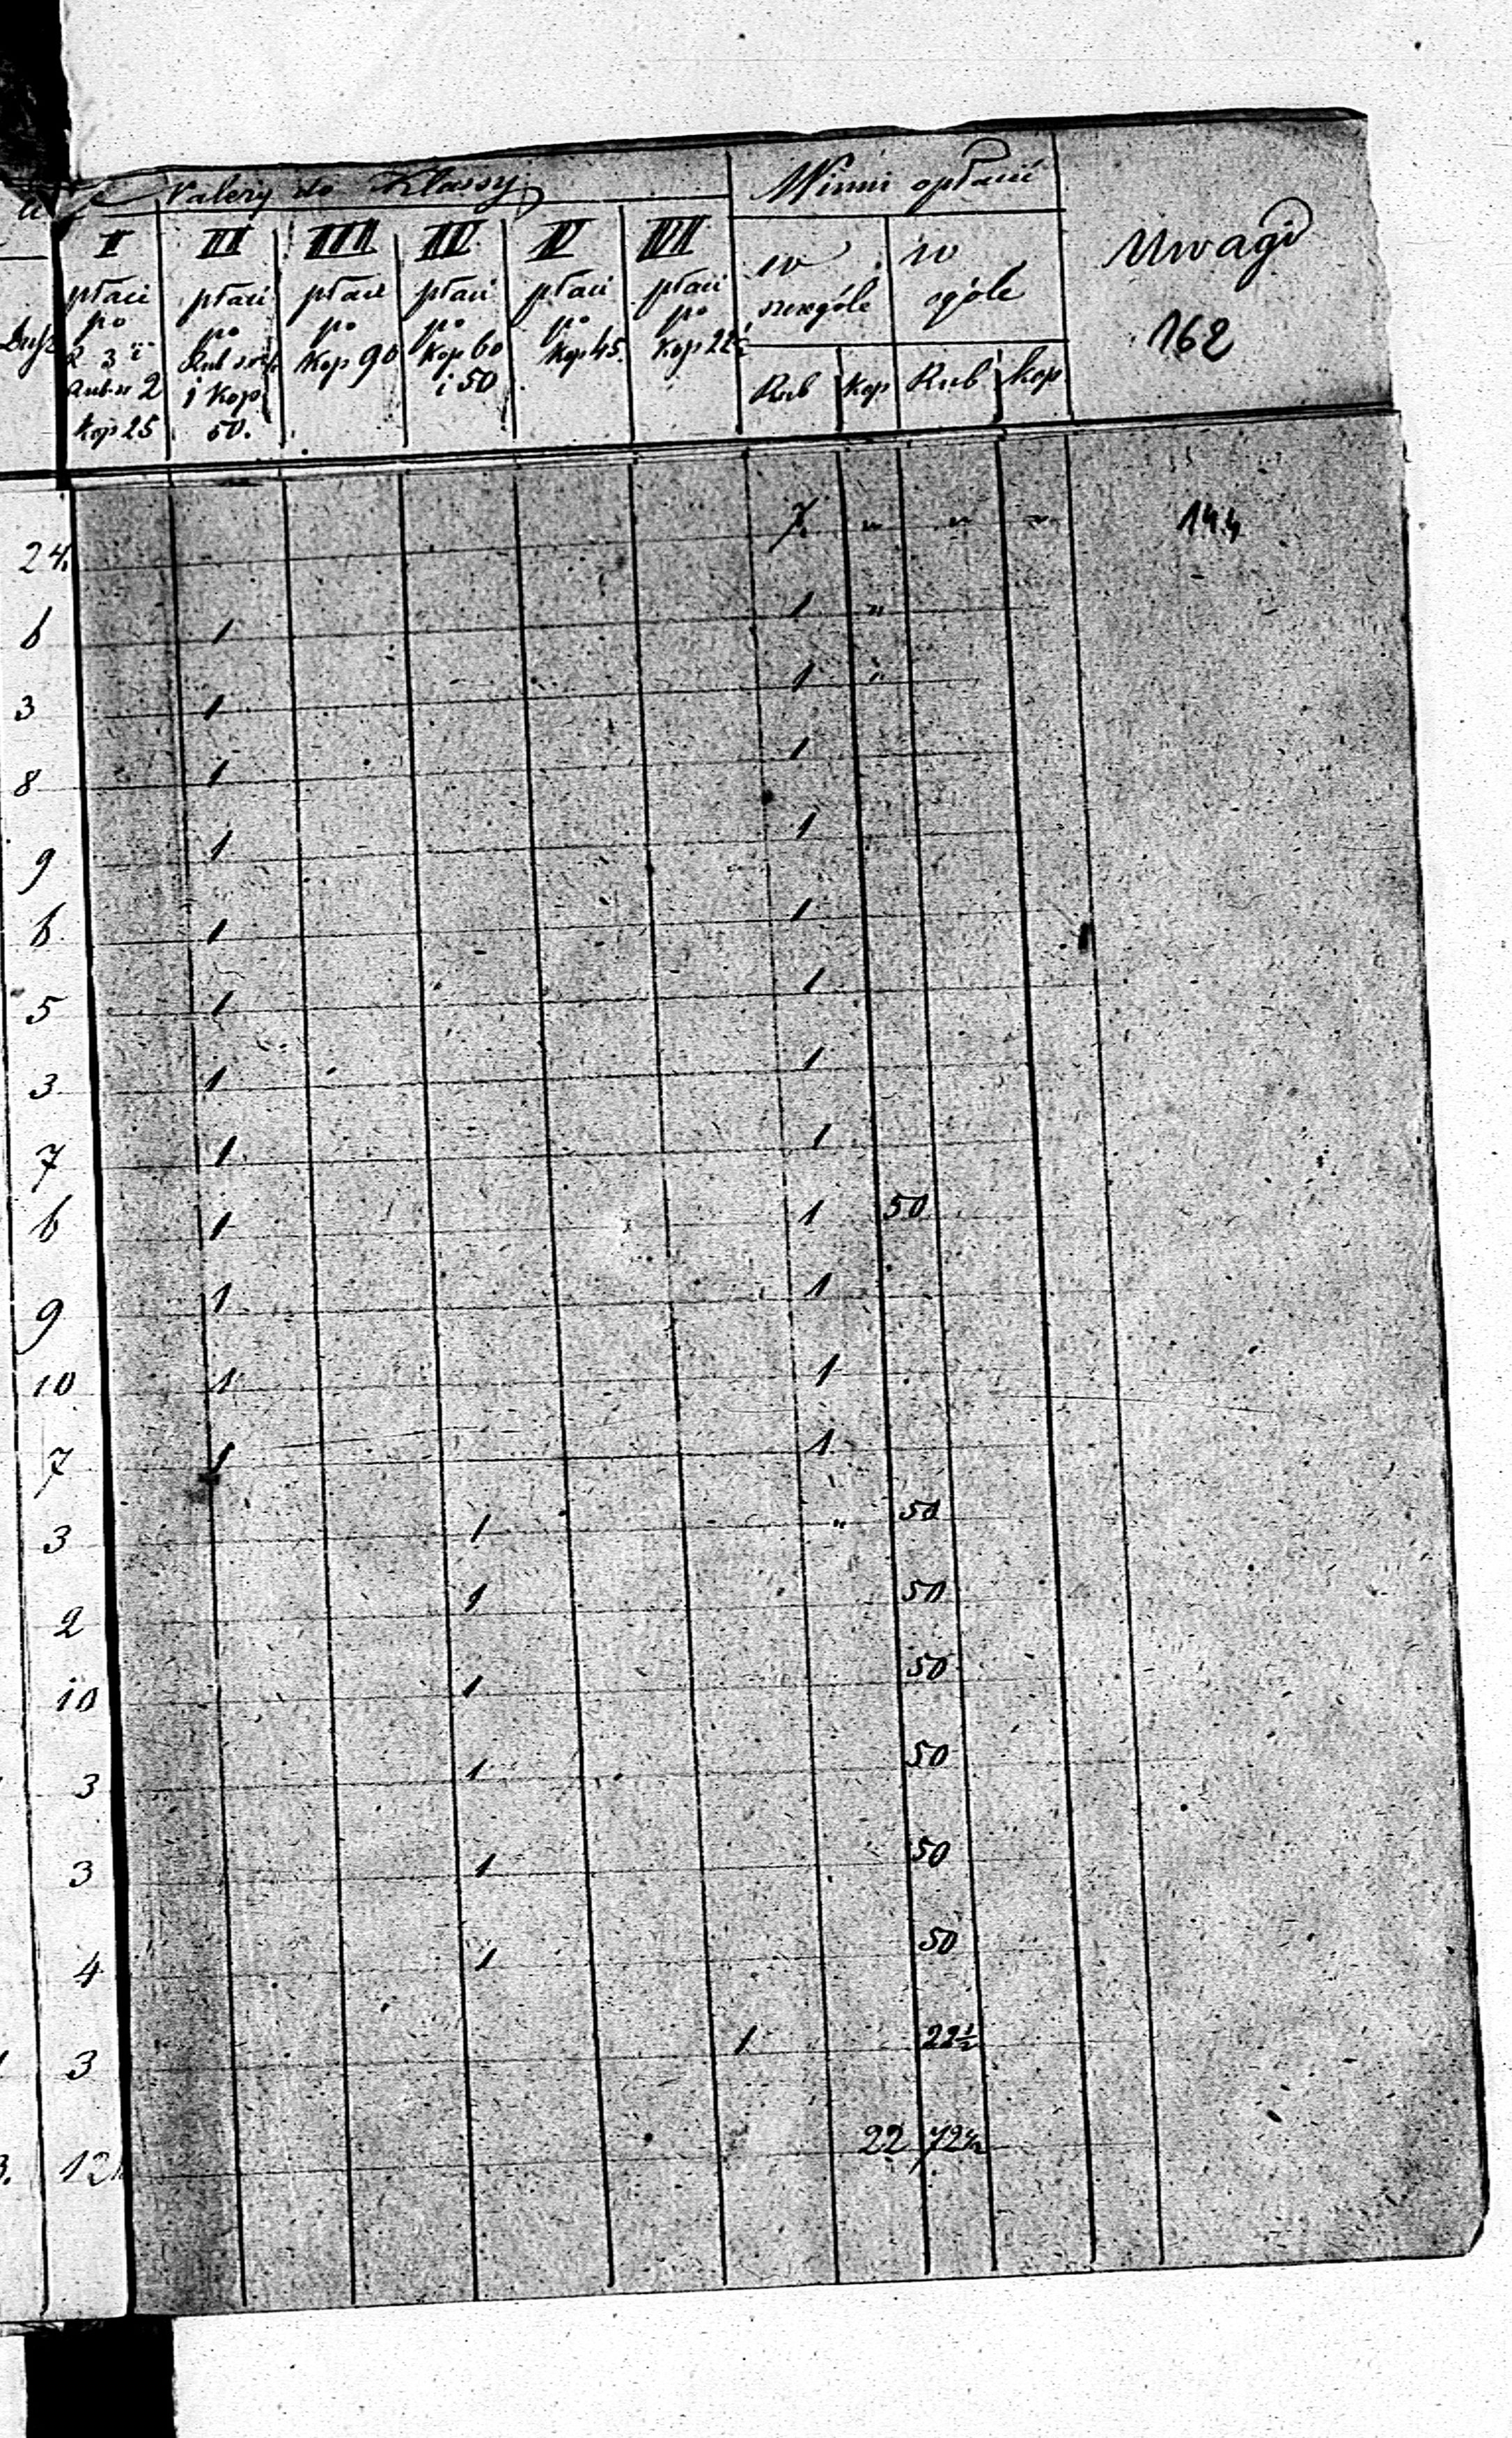 Należy do Klassy
Winni opłacić
Uwagi
162
I II III IV V VI
w szczególe
w ogóle
Dusz
płaci po 2 3 i Rub sr 2 kop 25
płaci po Rub i kop 50.
płaci po kop 90
płaci po kop 60 i 50
płaci po kop 45.
płaci po kop 22½
Rub kop Rub kop
24. 7. " " " 144
6 1 1 "
3 1 1 "
8 1 1
9 1 1
6 1 1
5 1 1
3 1 1
7 1 1
6 1 1 50
9 1 1
10 1 1
7 1 1
3 1 " 50
2 1 50
10 1 50
3 1 50
3 1 50
4 1 50
3 1 22½
22 72½